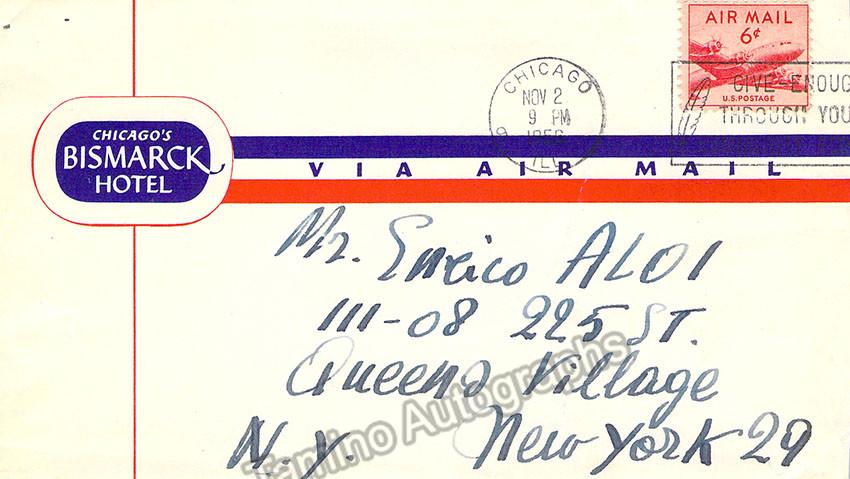 AIR MAIL
6¢
U.S. POSTAGE
CHICAGO
NOV 2
9 PM
ILL
GIVE ENOUG
THROUGH YOU
CHICAGO'S
BISMARCK
HOTEL
VIA AIR MAIL
Mr. Enrico ALOI
111-08 225 ST.
Queens Village
N.Y. New York 29
Tamino Autographs